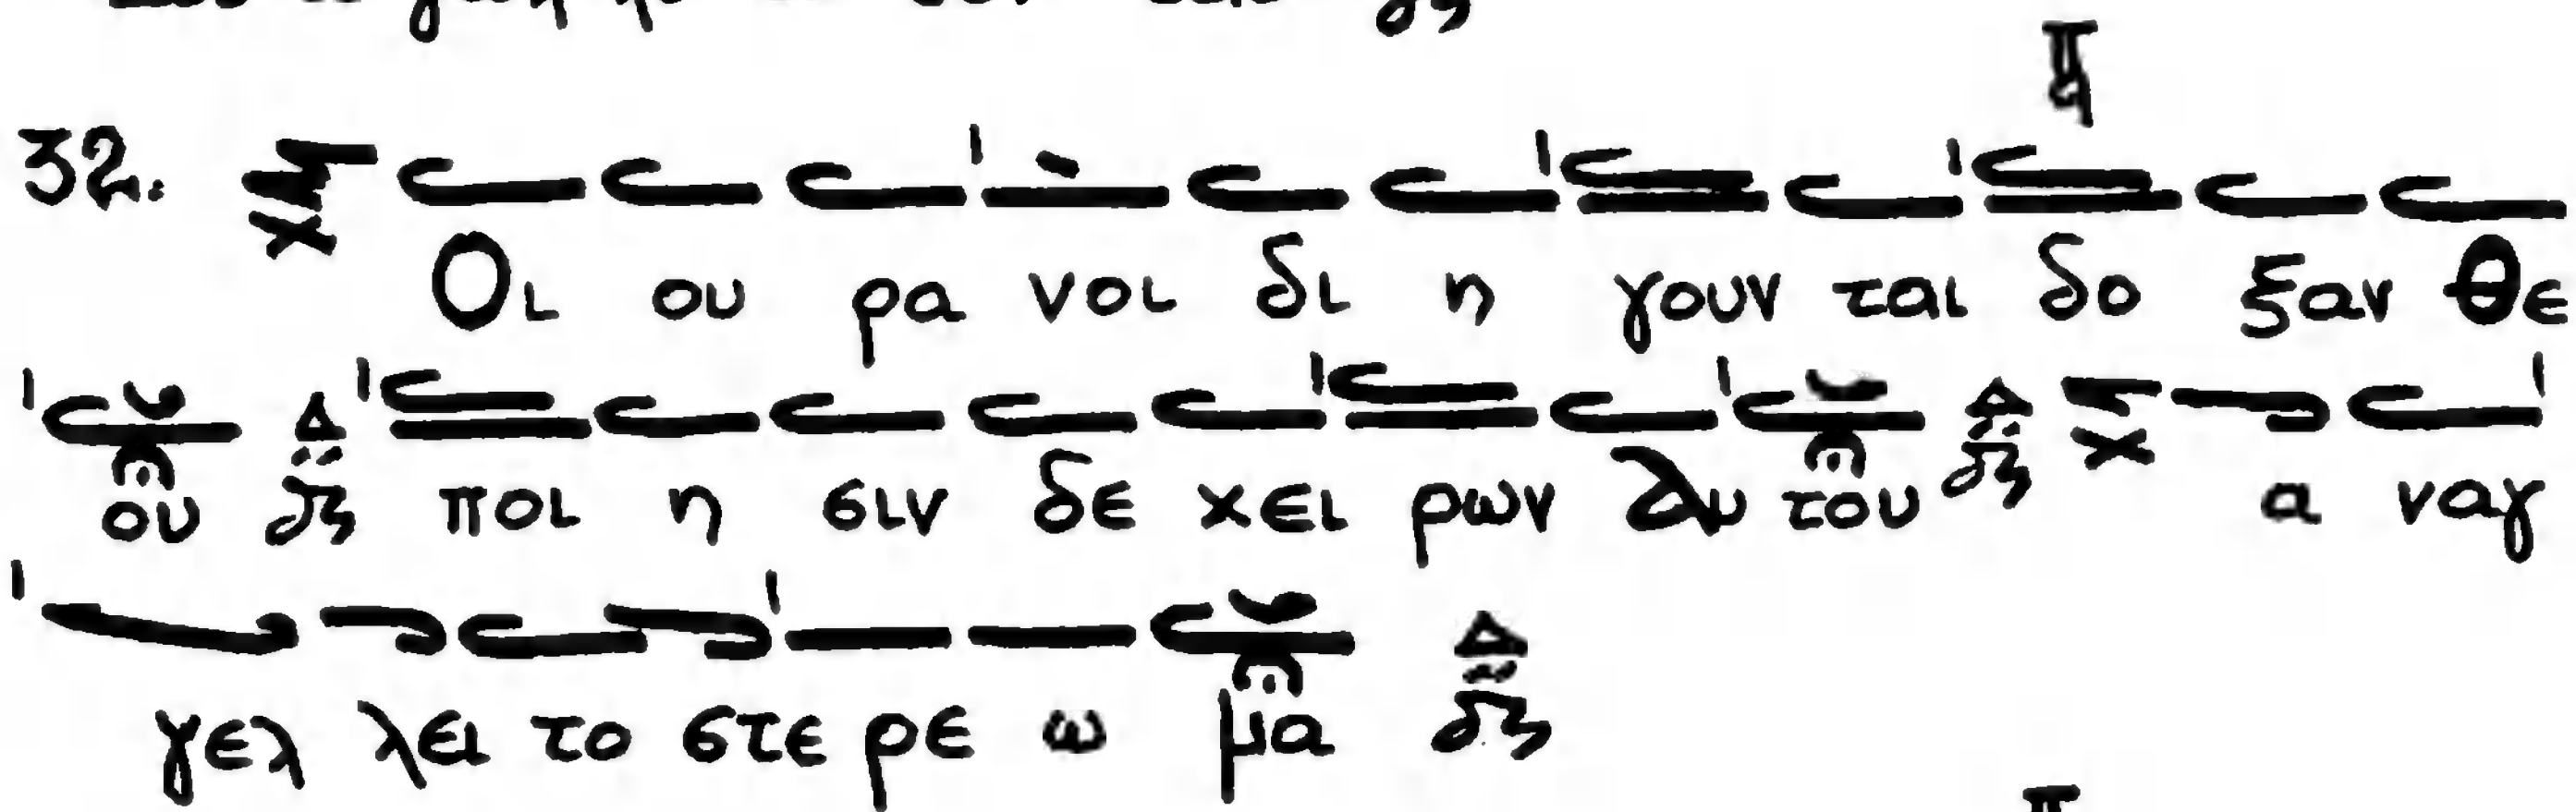 32. Οι ου ρα νοι δι η γουν ται δο ξαν Θε
ου δι ποι η σιν δε χει ρων Αυ του δι α ναγ
γελ λει το στε ρε ω μα δι